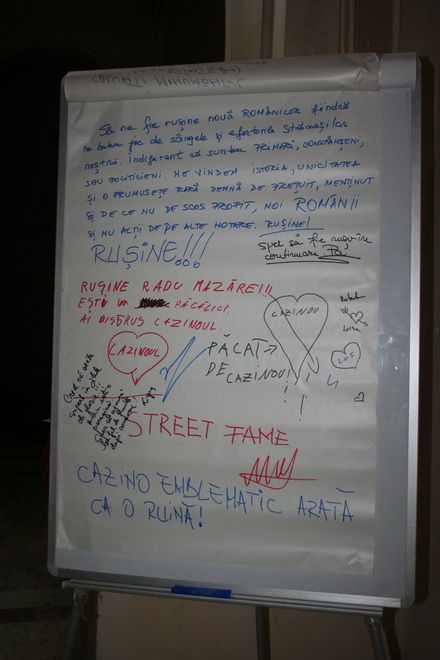 SALVAȚI MONUMENTUL
Să ne fie rușine nouă ROMÂNILOR fiindcă
ne batem joc de sângele și eforturile strămoșilor
noștrii. Indiferent că suntem PRIMARI, CONSTĂNȚENI,
SAU POLITICIENI. NE VINDEM ISTORIA, UNICITATEA
ȘI O FRUMUSEȚE RARĂ DEMNĂ DE PREȚUIT, MENȚINUT
ȘI DE CE NU DE SCOS PROFIT, NOI ROMÂNII
ȘI NU ALȚII DE PE ALTE HOTARE. RUȘINE!
RUȘINE!!!
sper să fie rușine în
continuare
RUȘINE RADU MAZĂRE!!!
EȘTI un PĂCĂLICI
AI DISTRUS CAZINOUL
CAZINOU
CAZINOUL
PĂCAT→
DE CAZINOU!
STREET FAME
CAZINO EMBLEMATIC ARATĂ
CA O RUINĂ!